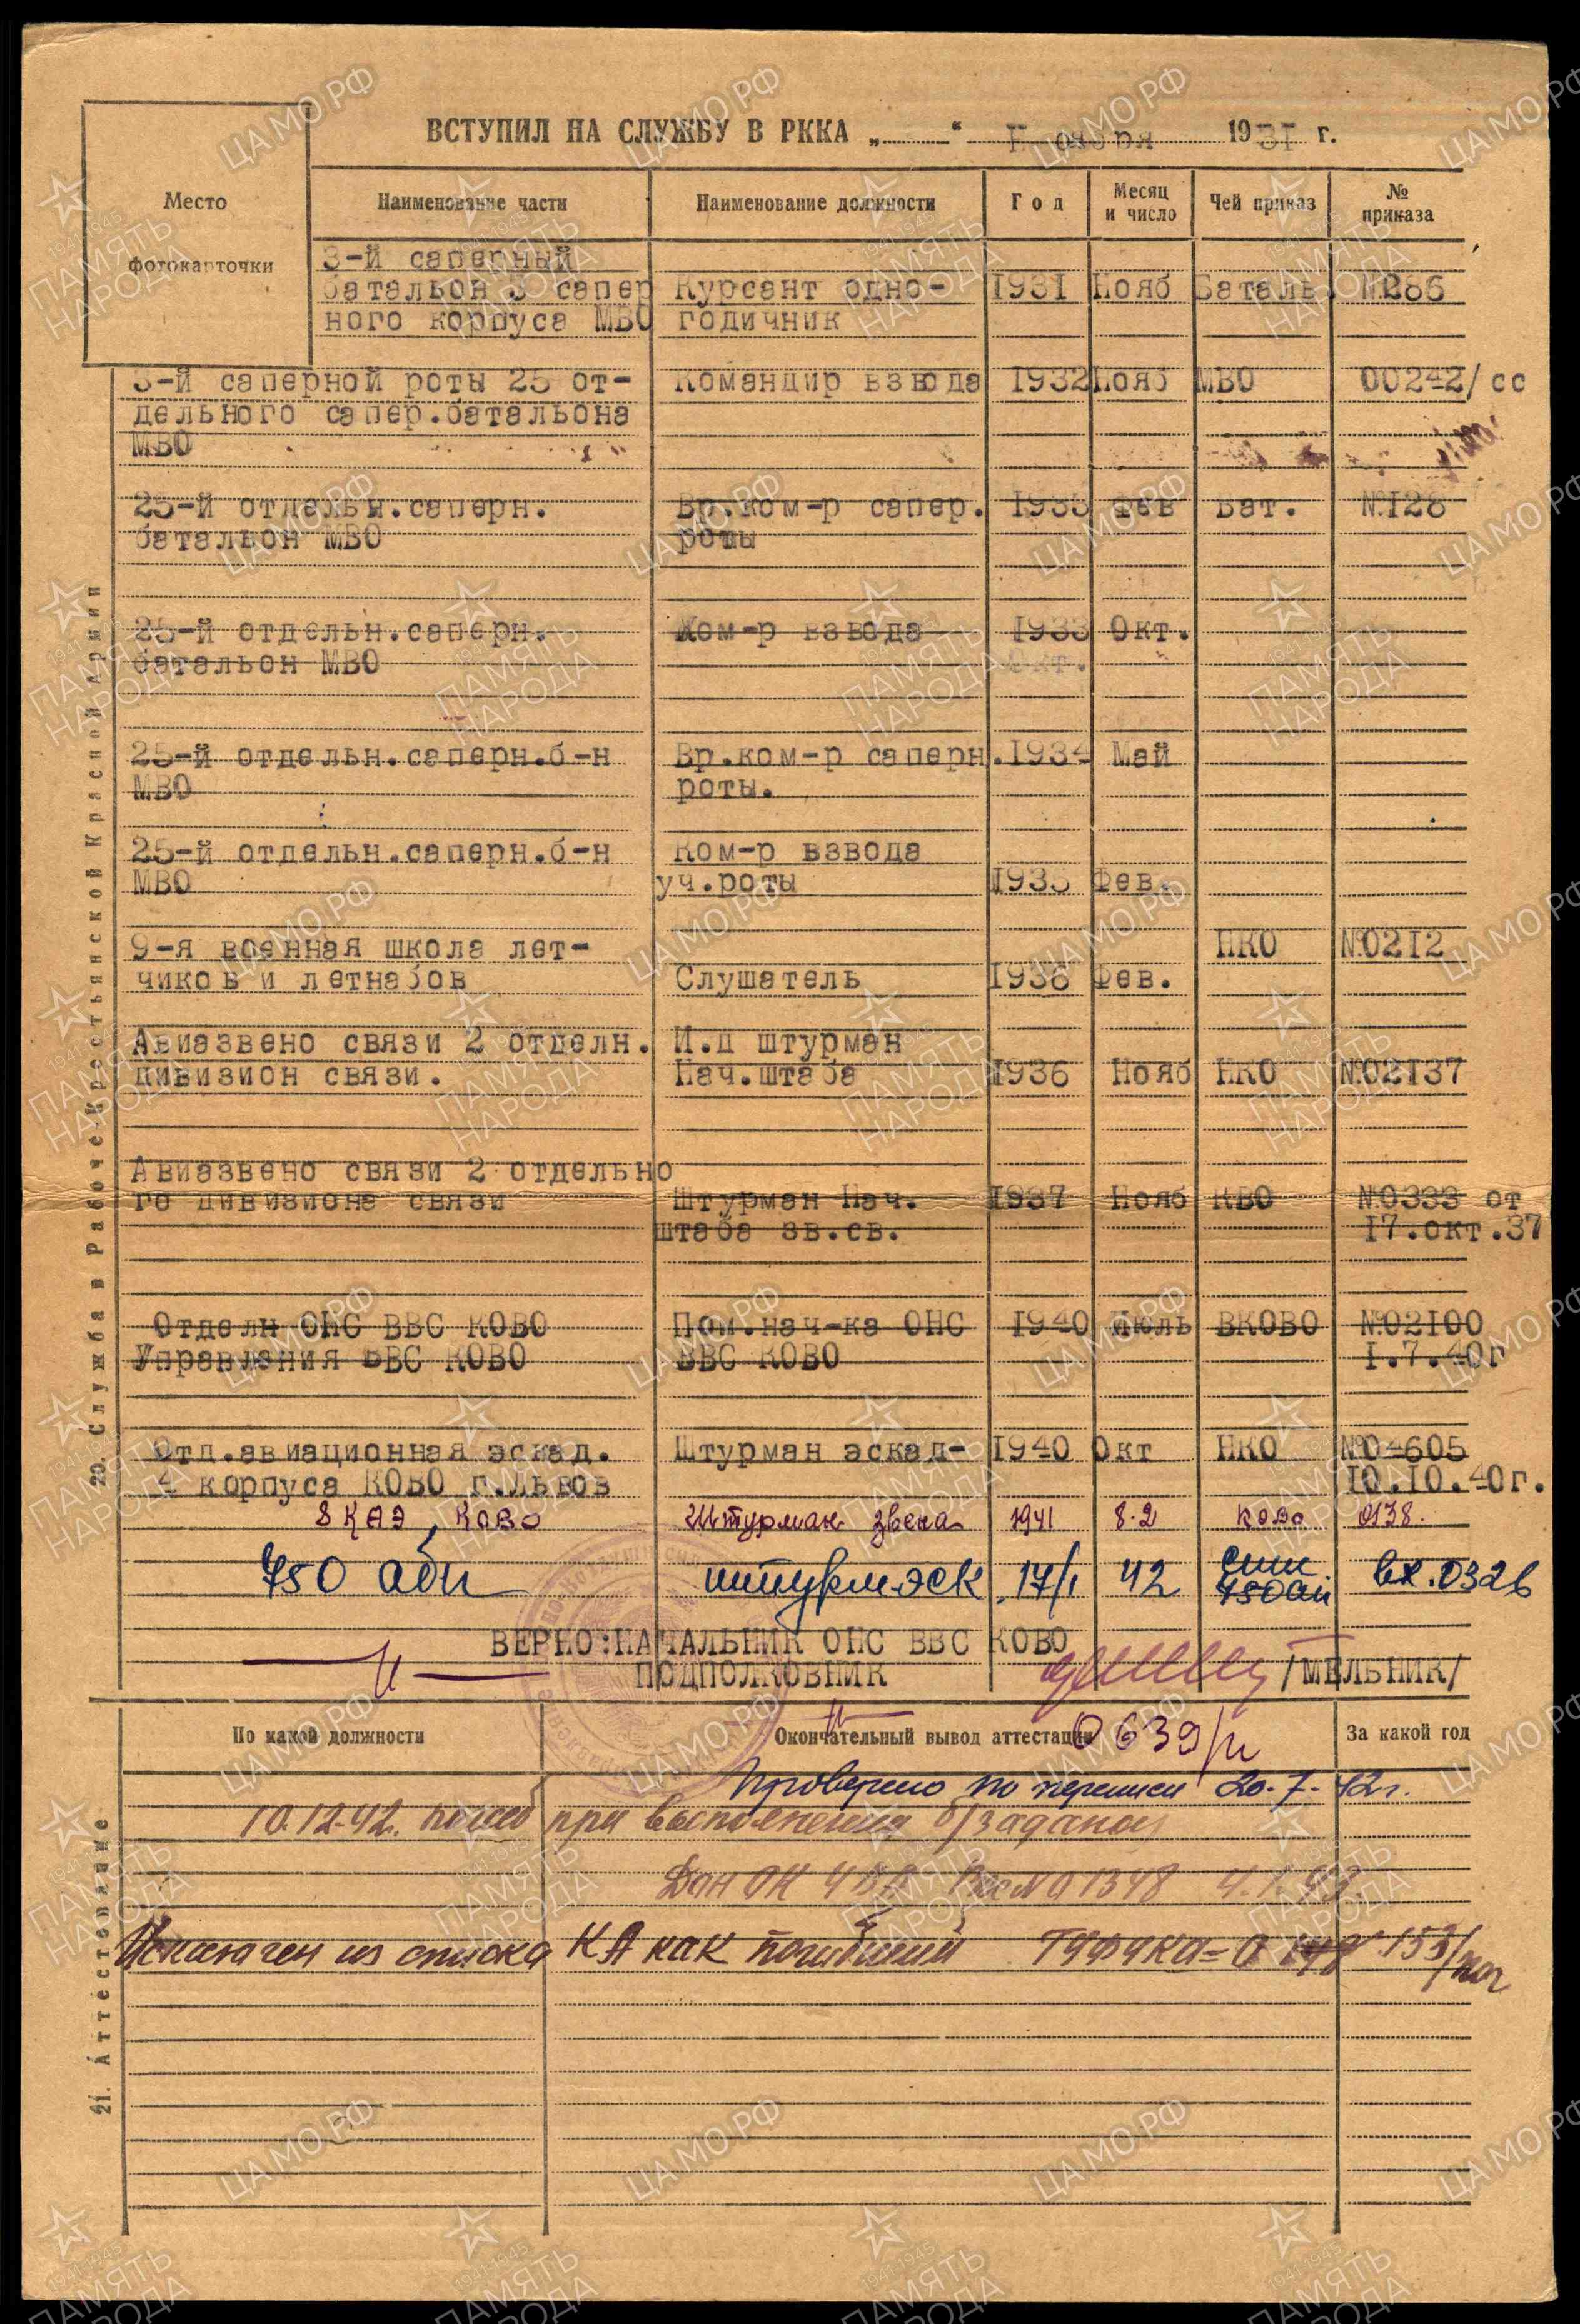 ВСТУПИЛ НА СЛУЖБУ В РККА „ “ Ноября 1931 г.
Место
фотокарточки
Наименование части Наименование должности Год Месяц и число Чей приказ № приказа
3-й саперный
батальон 3 сапер Курсант одно- 1931 Нояб Баталь. №286
ного корпуса МВО годичник
3-й саперной роты 25 от- Командир взвода 1932 Нояб МВО 00242/сс
дельного сапер.батальона
МВО
25-й отдельн.саперн. Вр.ком-р сапер. 1933 Фев Бат. №128
батальон МВО роты
25-й отдельн.саперн. Ком-р взвода 1933 Окт.
батальон МВО Окт.
25-й отдельн.саперн.б-н Вр.ком-р саперн. 1934 Май
МВО роты.
25-й отдельн.саперн.б-н Ком-р взвода
МВО уч.роты 1935 Фев.
9-я военная школа лет- НКО №0212
чиков и летнабов Слушатель 1936 Фев.
Авиазвено связи 2 отделн. И.д штурман
дивизион связи. Нач.штаба 1936 Нояб НКО №02137
Авиазвено связи 2 отдельно
го дивизиона связи Штурман Нач. 1937 Нояб КВО №0333 от
штаба зв.св. 17.окт.37
Отделн ОНС ВВС КОВО Пом.нач-ка ОНС 1940 Июль ВКОВО №02100
Управления ВВС КОВО ВВС КОВО 1.7.40г
Отд.авиационная эскад. Штурман эскад- 1940 Окт НКО №04605
4 корпуса КОВО г.Львов 10.10.40г.
8 КАЭ, КОВО Штурман звена 1941 8.2 КОВО 0138.
750 абп штурм.эск. 17/I 42 750ап вх.0326
ВЕРНО:НАЧАЛЬНИК ОНС ВВС КОВО
ПОДПОЛКОВНИК /МЕЛЬНИК/
По какой должности Окончательный вывод аттестации За какой год
0639/н
Проверено по переписи 20.7.42г.
10.12.42. погиб при выполнении б/задания
Дон ОК 4 ВА №01348
Исключен из списка КА как погибший ГУФУКА
20. Служба в Рабоче-Крестьянской Красной Армии
21. Аттестование
ЦАМО.РФ
1941-1945
ПАМЯТЬ
НАРОДА